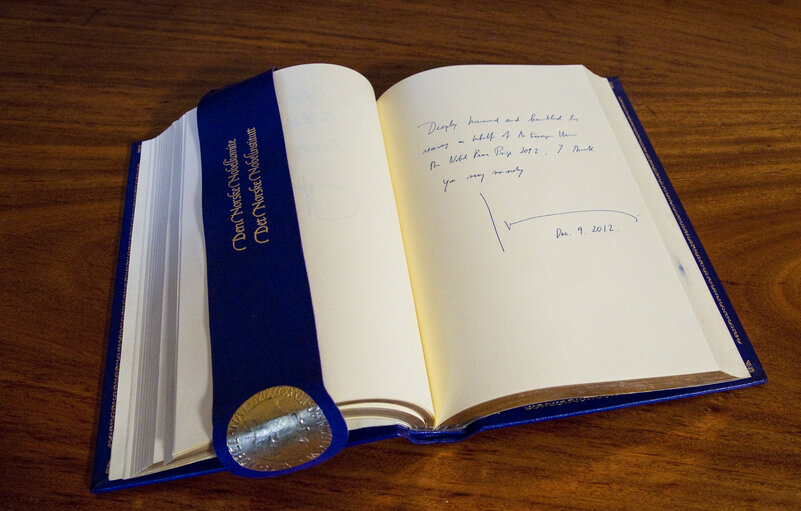 Den Norske Nobelkomite
Det Norske Nobelinstitutt
Deeply honoured and humbled by
receiving on behalf of the Europ. Union
the Nobel Peace Prize 2012. I thank
you very sincerely.
Dec. 9. 2012.